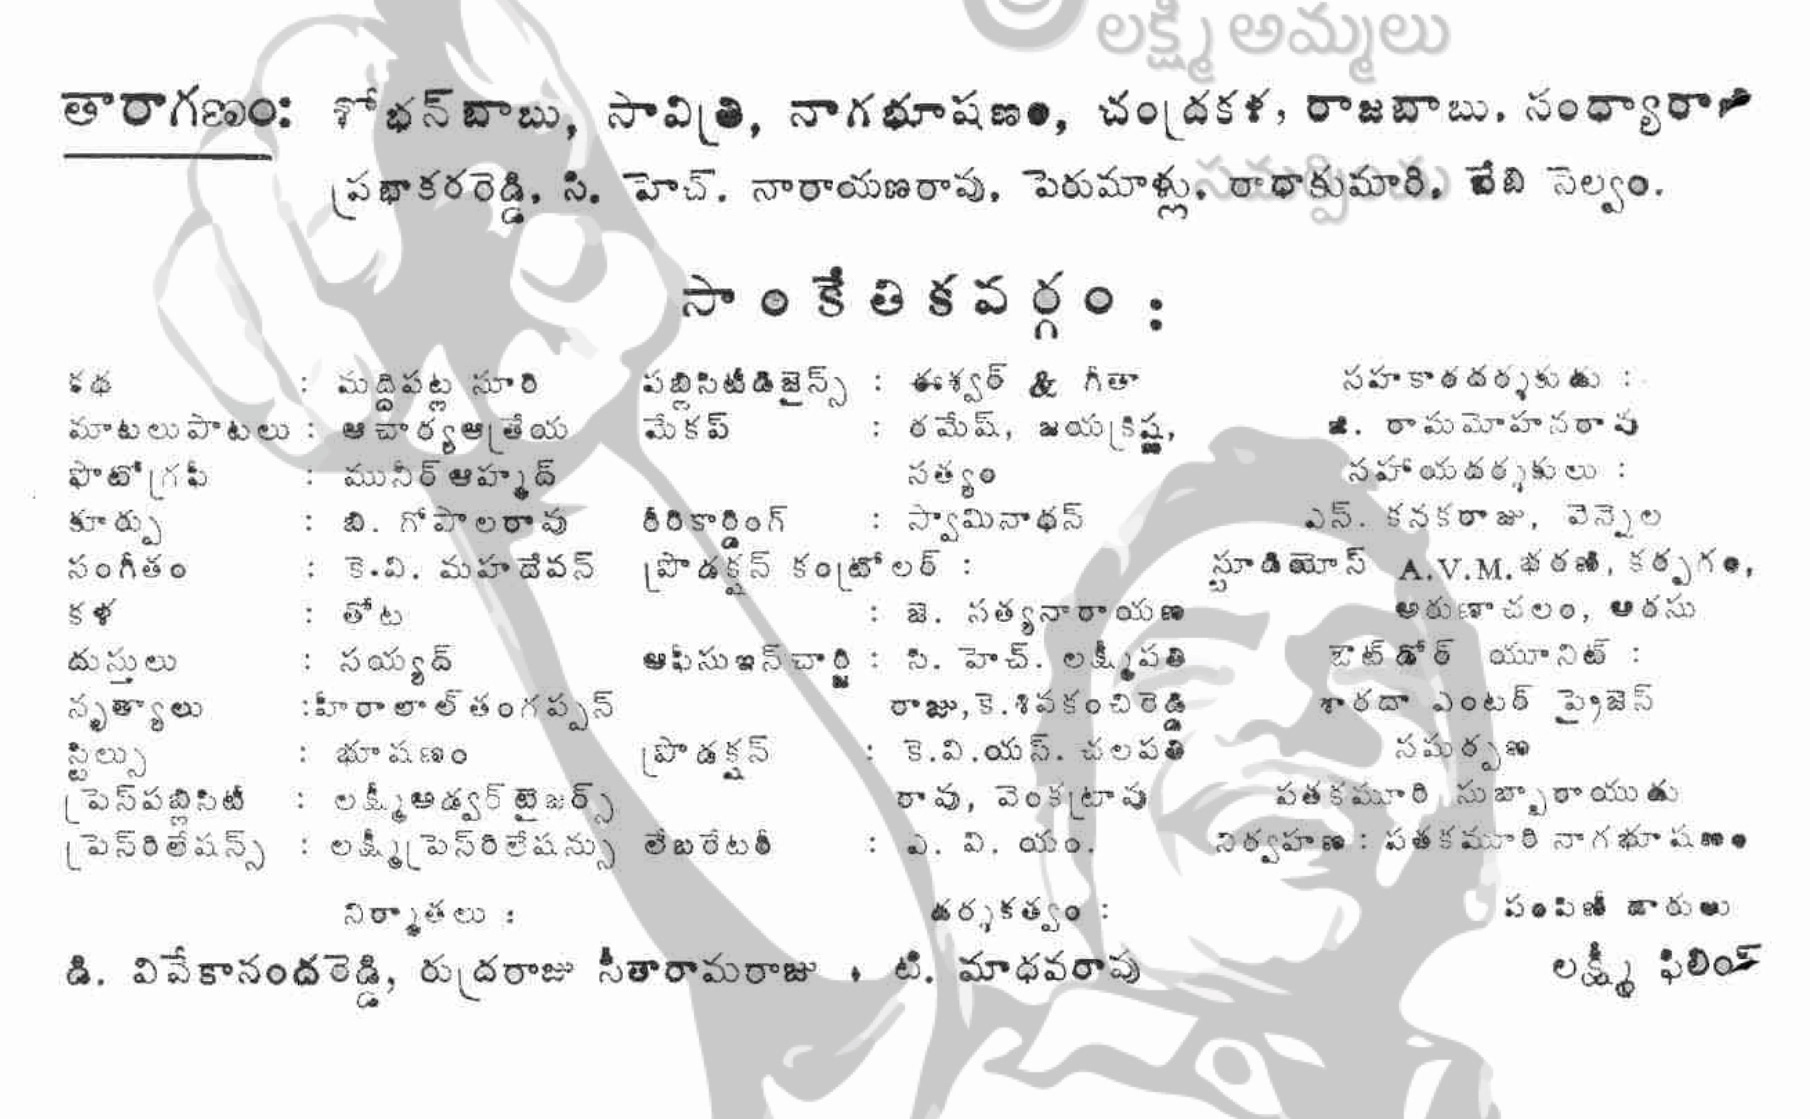 లక్ష్మి అమ్మలు
తారాగణం: శోభన్‌బాబు, సావిత్రి, నాగభూషణం, చంద్రకళ, రాజబాబు, సంధ్యారాణి
సమర్పించు
ప్రభాకరరెడ్డి, సి. హెచ్. నారాయణరావు, పెరుమాళ్లు, రాధాకుమారి, దేవి సెల్వం.
సాంకేతికవర్గం :
కథ : మద్దిపట్ల సూరి పబ్లిసిటీడిజైన్స్ : ఈశ్వర్ & గీతా సహకారదర్శకుడు :
మాటలుపాటలు : ఆచార్యఆత్రేయ మేకప్ : రమేష్, జయక్రిష్ణ, జి. రామమోహనరావు
ఫొటోగ్రఫీ : మునీర్‌ఆహ్మద్ సత్యం సహాయదర్శకులు :
కూర్పు : బి. గోపాలరావు రీరికార్డింగ్ : స్వామినాథన్ ఎన్. కనకరాజు, వెన్నెల
సంగీతం : కె.వి. మహదేవన్ ప్రొడక్షన్ కంట్రోలర్ : స్టూడియోస్ A.V.M. భరణి, కర్పగం,
కళ : తోట : జె. సత్యనారాయణ అరుణాచలం, ఆరసు
దుస్తులు : సయ్యద్ ఆఫీసుఇన్‌చార్జి : సి. హెచ్. లక్ష్మీపతి ఔట్‌డోర్ యూనిట్ :
నృత్యాలు :హీరాలాల్‌తంగప్పన్ రాజు,కె.శివకంచిరెడ్డి శారదా ఎంటర్ ప్రైజెస్
స్టిల్సు : భూషణం ప్రొడక్షన్ : కె.వి.యస్. చలపతి సమర్పణ
ప్రెస్‌పబ్లిసిటీ : లక్ష్మీఅడ్వర్‌టైజర్స్ రావు, వెంకట్రావు పతకమూరి సుబ్బారాయుడు
ప్రెస్‌రిలేషన్స్ : లక్ష్మీప్రెస్‌రిలేషన్సు లేబరేటరీ : ఎ. వి. యం. నిర్వహణ : పతకమూరి నాగభూషణం
నిర్మాతలు : దర్శకత్వం : పంపిణీ దారులు
డి. వివేకానందరెడ్డి, రుద్రరాజు సీతారామరాజు . టి. మాధవరావు లక్ష్మీ ఫిలింస్